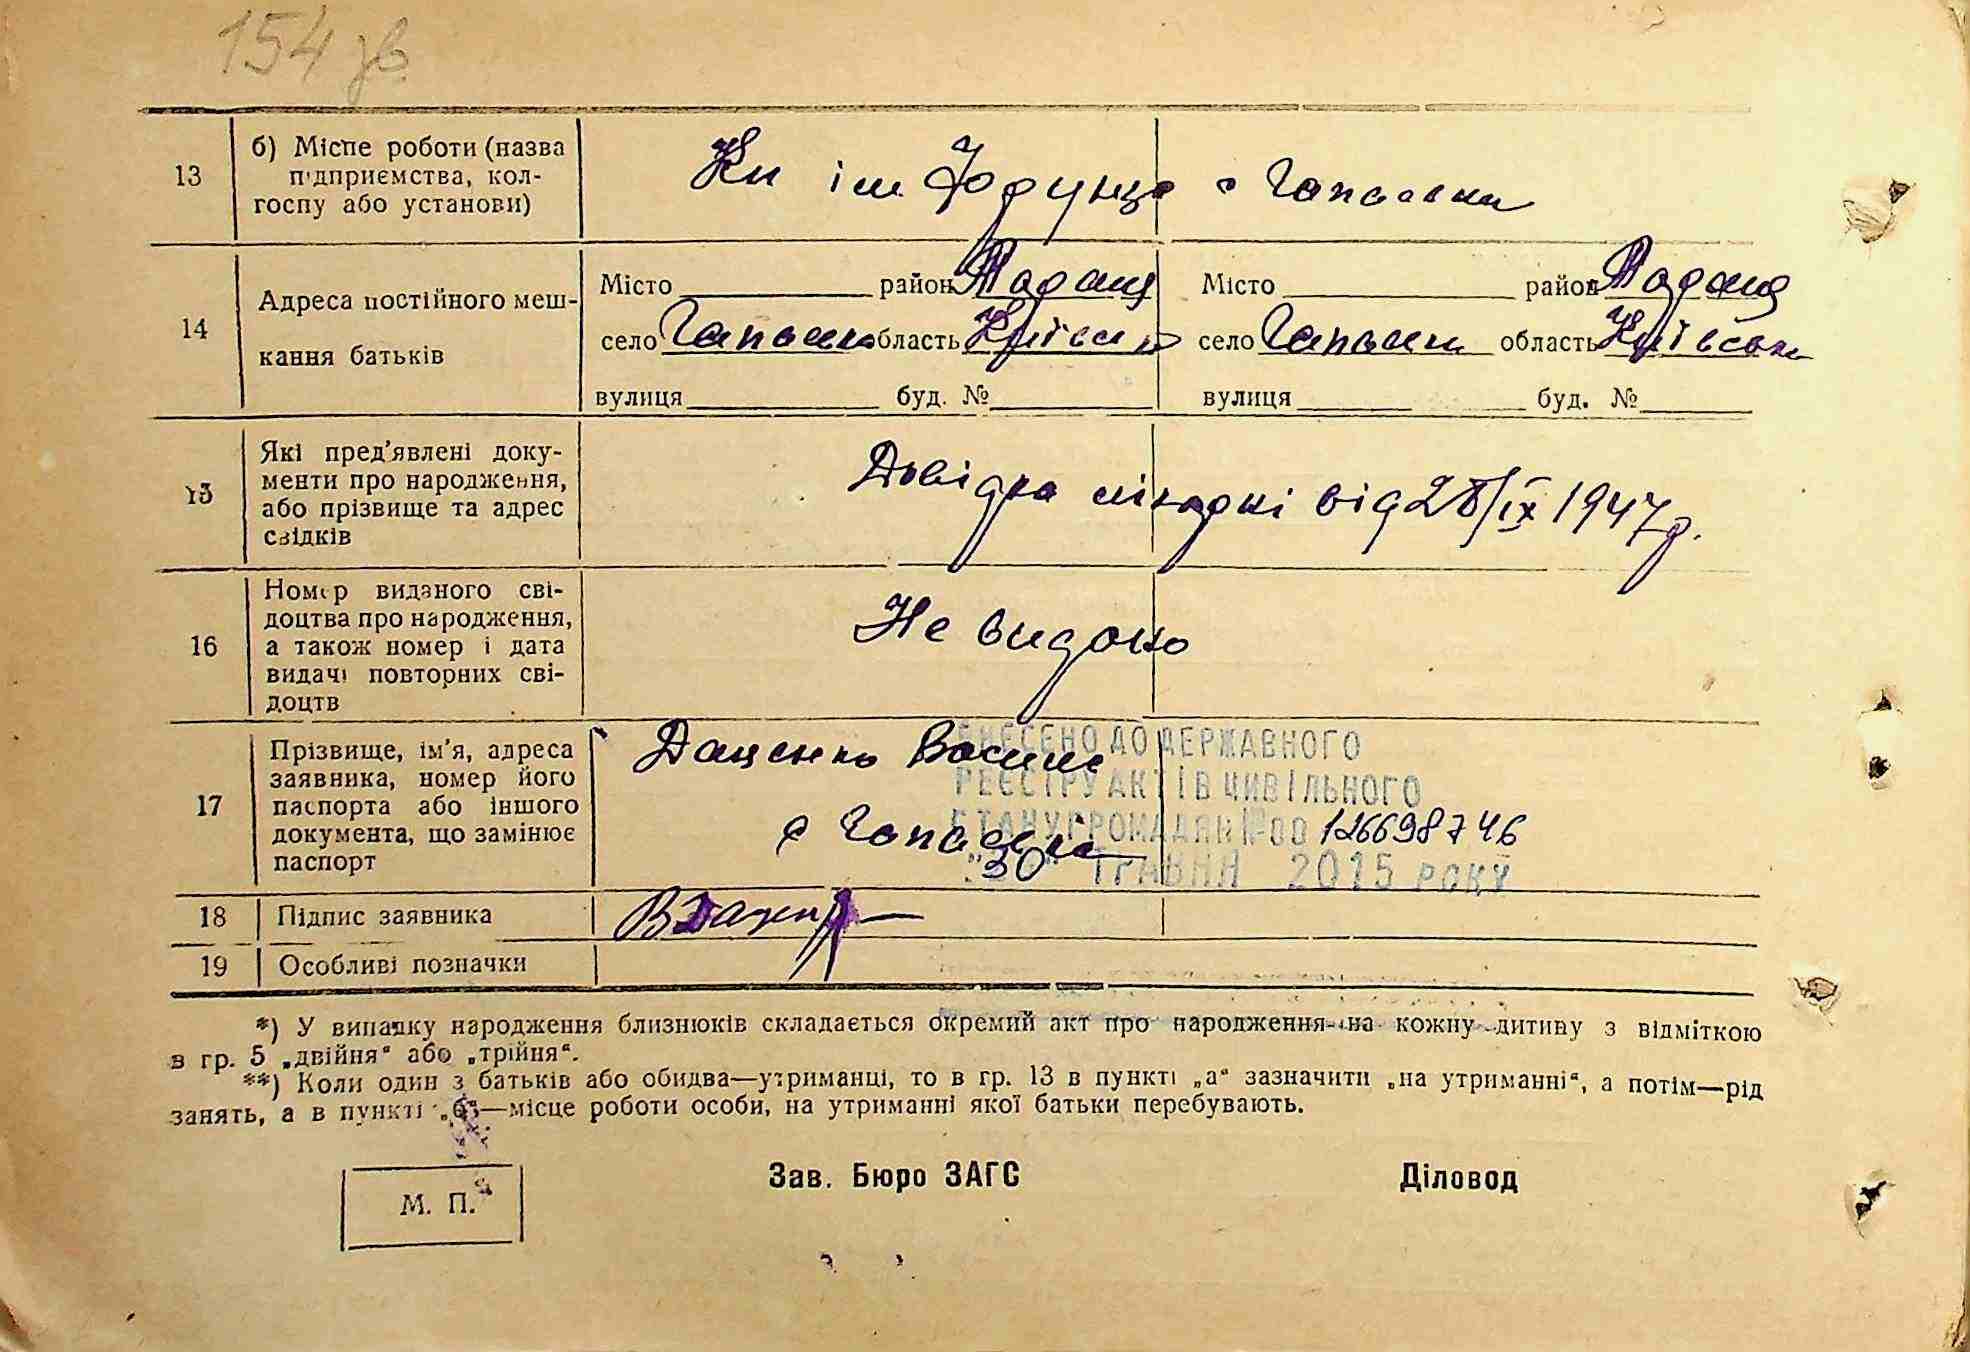 154 зв.
13
б) Місце роботи (назва
підприємства, кол-
госпу або установи)
Кп ім Фрунце с
14
Адреса постійного меш-
кання батьків
Місто район Таращ
село область Київськ
вулиця буд. №
Місто район Таращ
село область Київська
вулиця буд. №
15
Які пред'явлені доку-
менти про народження,
або прізвище та адрес
свідків
Довідка лікарні від 28/IX 1947 р.
16
Номер виданого сві-
доцтва про народження,
а також номер і дата
видачі повторних сві-
доцтв
Не видано
17
Прізвище, ім'я, адреса
заявника, номер його
паспорта або іншого
документа, що замінює
паспорт
Даценко Василь
с
ВНЕСЕНО ДО ДЕРЖАВНОГО
РЕЄСТРУ АКТІВ ЦИВІЛЬНОГО
СТАНУ ГРОМАДЯН № 00126698746
"30" ТРАВНЯ 2015 РОКУ
18
Підпис заявника
19
Особливі позначки
*) У випадку народження близнюків складається окремий акт про народження на кожну дитину з відміткою
в гр. 5 „двійня“ або „трійня“.
**) Коли один з батьків або обидва—утриманці, то в гр. 13 в пункті „а“ зазначити „на утриманні“, а потім—рід
занять, а в пункті „б“—місце роботи особи, на утриманні якої батьки перебувають.
Зав. Бюро ЗАГС
Діловод
М. П.